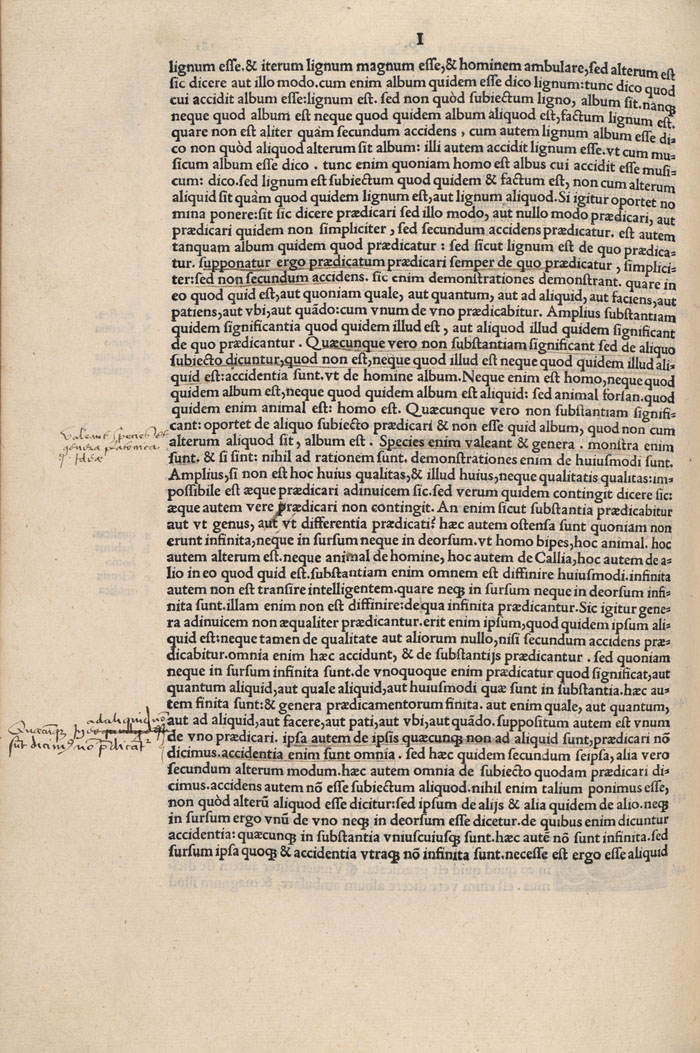 I
lignum esse.& iterum lignum magnum esse,& hominem ambulare,sed alterum est
sic dicere aut illo modo.cum enim album quidem esse dico lignum:tunc dico quod
cui accidit album esse:lignum est. sed non quòd subiectum ligno, album sit.nanq;
neque quod album est neque quod quidem album aliquod est,factum lignum est.
quare non est aliter quàm secundum accidens , cum autem lignum album esse di-
co non quòd aliquod alterum sit album: illi autem accidit lignum esse.vt cum mu-
sicum album esse dico . tunc enim quoniam homo est albus cui accidit esse musi-
cum: dico.sed lignum est subiectum quod quidem & factum est, non cum alterum
aliquid sit quàm quod quidem lignum est,aut lignum aliquod.Si igitur oportet no
mina ponere:sit sic dicere prædicari sed illo modo, aut nullo modo prædicari, aut
prædicari quidem non simpliciter , sed secundum accidens prædicatur. est autem
tanquam album quidem quod prædicatur : sed sicut lignum est de quo prædica-
tur. supponatur ergo prædicatum prædicari semper de quo prædicatur , simplici-
ter:sed non secundum accidens. sic enim demonstrationes demonstrant. quare in
eo quod quid est,aut quoniam quale, aut quantum, aut ad aliquid, aut faciens,aut
patiens,aut vbi,aut quãdo:cum vnum de vno prædicabitur. Amplius substantiam
quidem significantia quod quidem illud est , aut aliquod illud quidem significant
de quo prædicantur . Quæcunque vero non substantiam significant sed de aliquo
subiecto dicuntur,quod non est,neque quod illud est neque quod quidem illud ali-
quid est:accidentia sunt.vt de homine album.Neque enim est homo,neque quod
quidem album est,neque quod quidem album est aliquid: sed animal forsan.quod
quidem enim animal est: homo est. Quæcunque vero non substantiam signifi-
cant: oportet de aliquo subiecto prædicari & non esse quid album, quod non cum
alterum aliquid sit, album est . Species enim valeant & genera . monstra enim
sunt. & si sint: nihil ad rationem sunt. demonstrationes enim de huiusmodi sunt.
Amplius,si non est hoc huius qualitas,& illud huius,neque qualitatis qualitas:im-
possibile est æque prædicari adinuicem sic.sed verum quidem contingit dicere sic:
æque autem vere prædicari non contingit. An enim sicut substantia prædicabitur
aut vt genus, aut vt differentia prædicati? hæc autem ostensa sunt quoniam non
erunt infinita,neque in sursum neque in deorsum. vt homo bipes,hoc animal. hoc
autem alterum est.neque animal de homine, hoc autem de Callia,hoc autem de a-
lio in eo quod quid est.substantiam enim omnem est diffinire huiusmodi.infinita
autem non est transire intelligentem.quare neq; in sursum neque in deorsum infi-
nita sunt.illam enim non est diffinire:de qua infinita prædicantur.Sic igitur gene-
ra adinuicem non æqualiter prædicantur.erit enim ipsum,quod quidem ipsum ali-
quid est:neque tamen de qualitate aut aliorum nullo,nisi secundum accidens præ-
dicabitur.omnia enim hæc accidunt, & de substantijs prædicantur . sed quoniam
neque in sursum infinita sunt.de vnoquoque enim prædicatur quod significat,aut
quantum aliquid,aut quale aliquid,aut huiusmodi quæ sunt in substantia.hæc au-
tem finita sunt:& genera prædicamentorum finita. aut enim quale, aut quantum,
aut ad aliquid,aut facere,aut pati,aut vbi,aut quãdo. suppositum autem est vnum
de vno prædicari. ipsa autem de ipsis quæcunq; non ad aliquid sunt,prædicari nõ
dicimus.accidentia enim sunt omnia . sed hæc quidem secundum seipsa,alia vero
secundum alterum modum.hæc autem omnia de subiecto quodam prædicari di-
cimus.accidens autem nõ esse subiectum aliquod.nihil enim talium ponimus esse,
non quòd alterũ aliquod esse dicitur:sed ipsum de alijs & alia quidem de alio.neq;
in sursum ergo vnũ de vno neq; in deorsum esse dicetur.de quibus enim dicuntur
accidentia: quæcunq; in substantia vniuscuiusq; sunt.hæc autẽ nõ sunt infinita.sed
sursum ipsa quoq; & accidentia vtraq; nõ infinita sunt.necesse est ergo esse aliquid
valeant species et
genera platonica
Ideæ
ad aliquid nõ
Quæcunq;
sũt dicim9 nõ